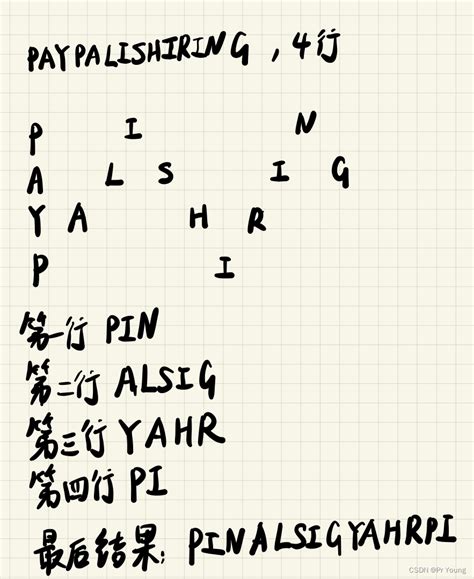 PAYPALISHIRING，4行
P I N
A L S I G
Y A H R
P I
第一行 PIN
第二行 ALSIG
第三行 YAHR
第四行 PI
最后结果：PINALSIGYAHRPI
CSDN @Pr Young